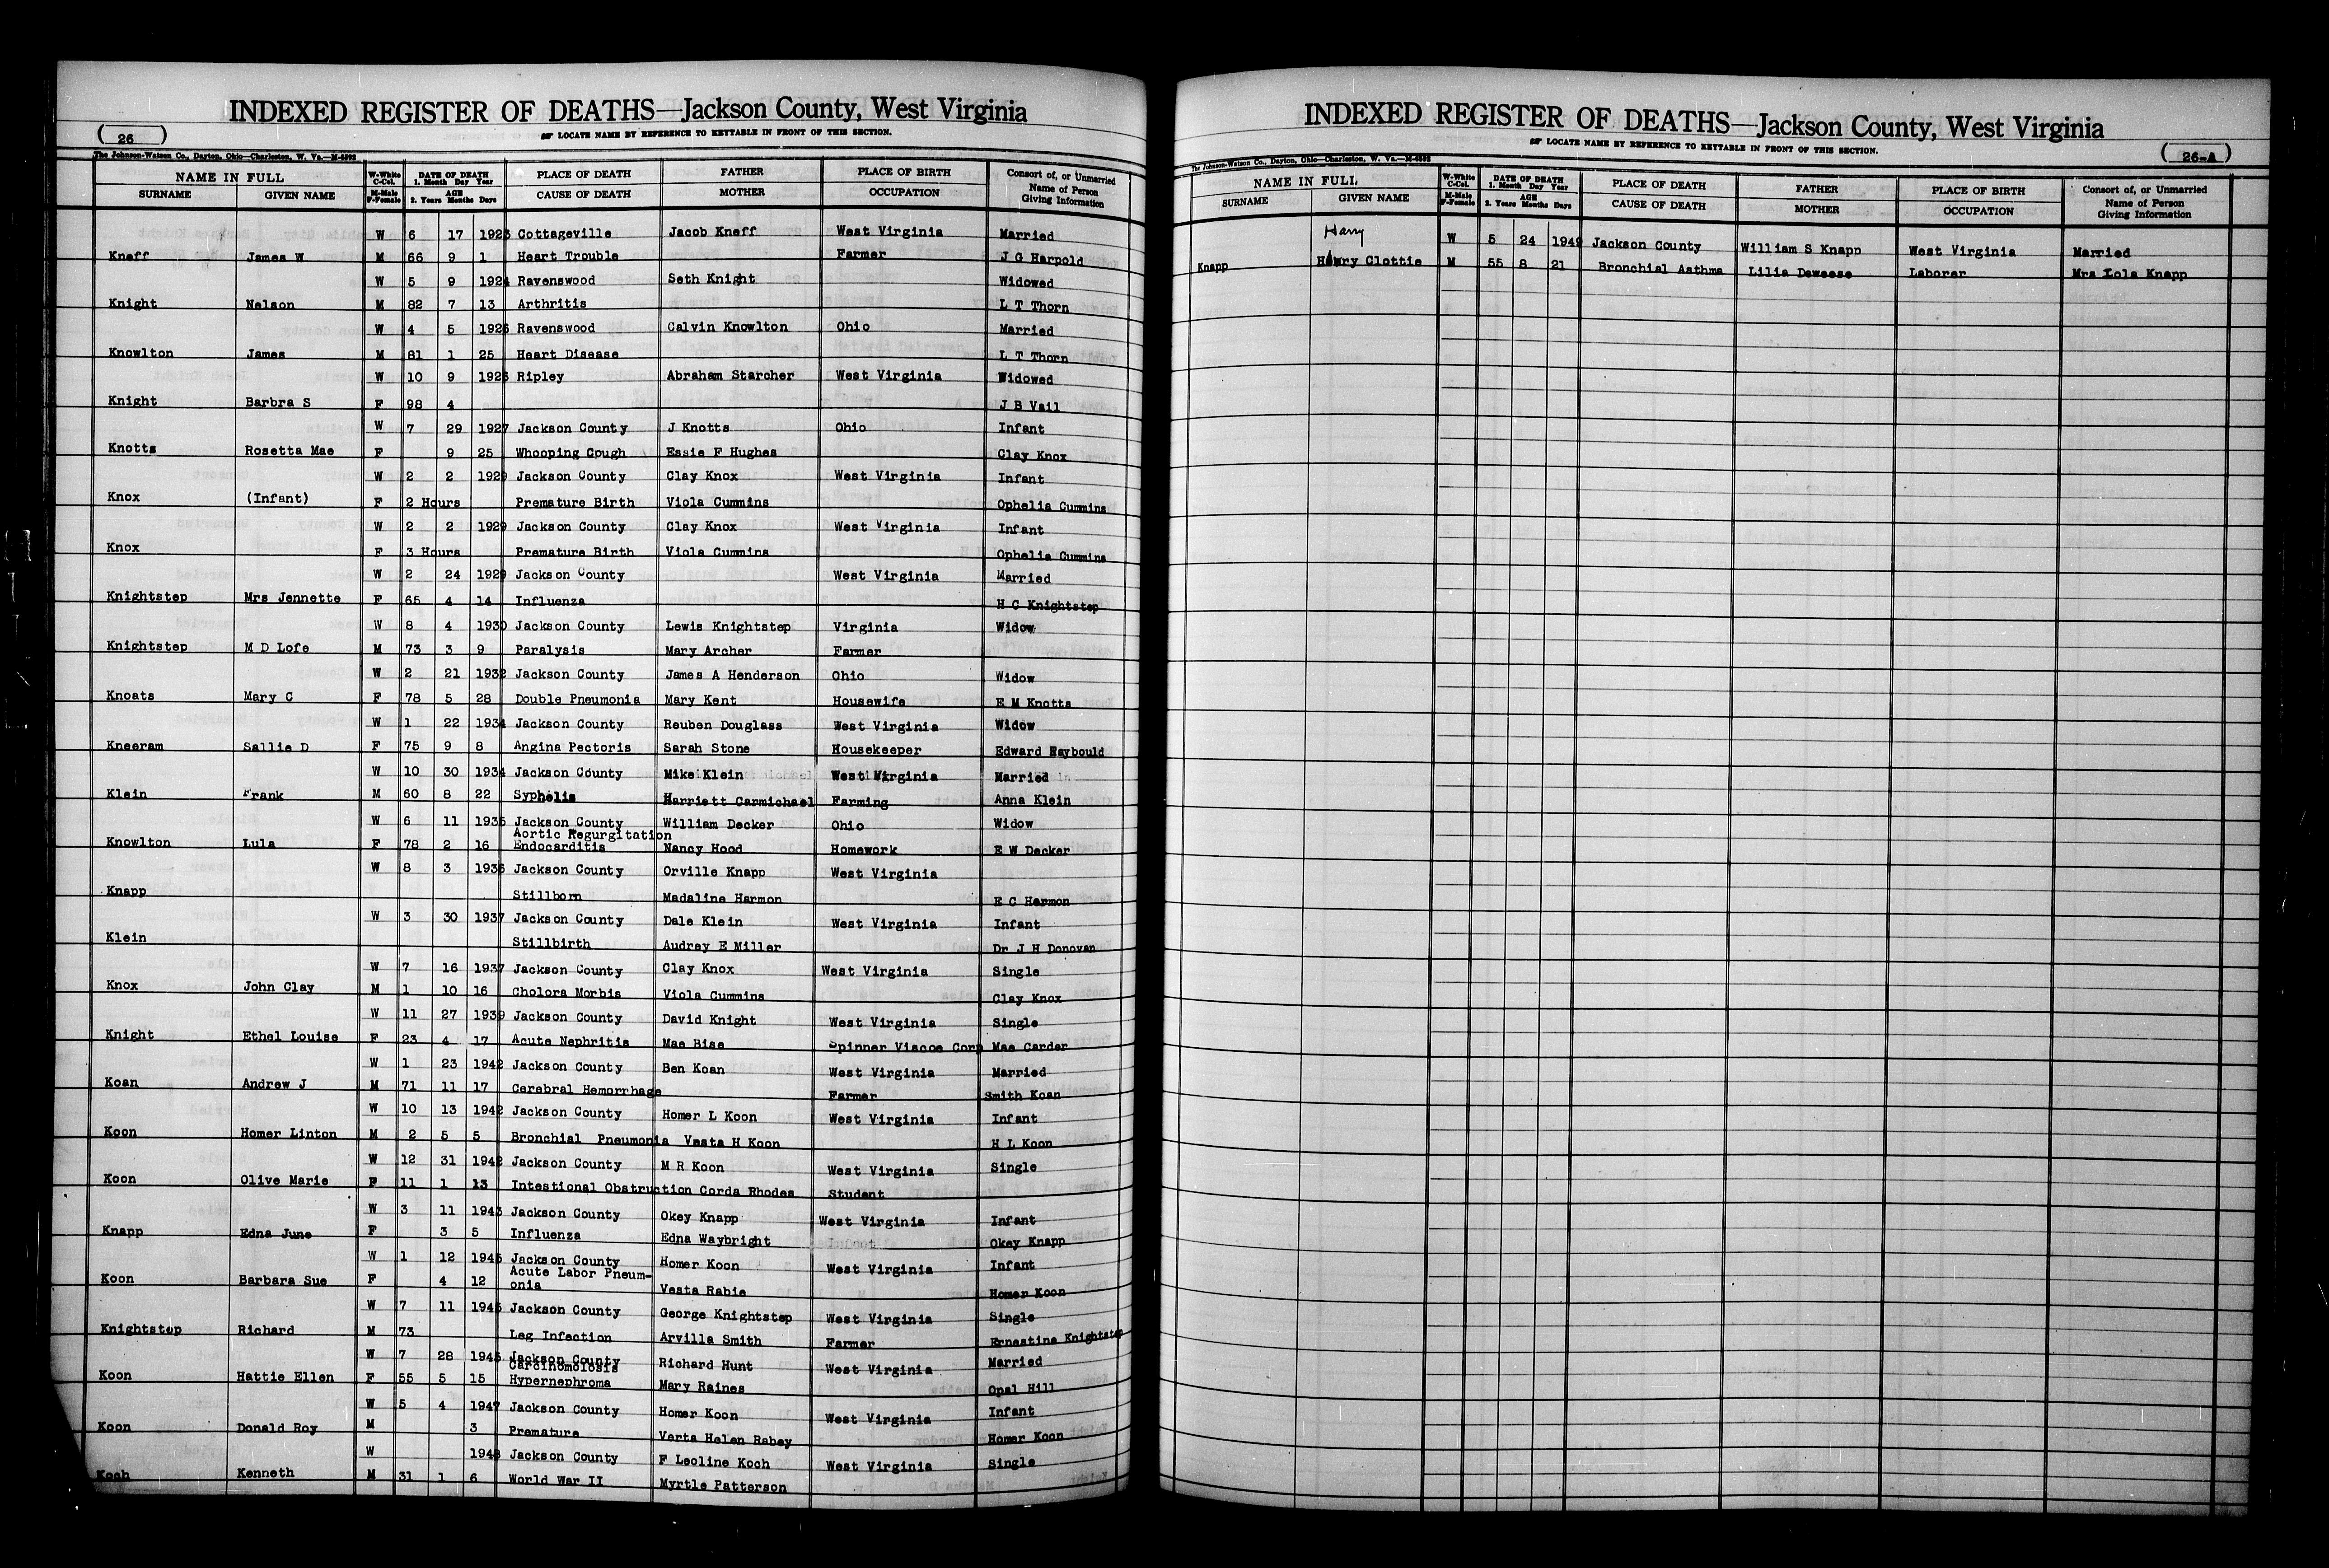 INDEXED REGISTER OF DEATHS—Jackson County, West Virginia
( 26 )
LOCATE NAME BY REFERENCE TO KEYTABLE IN FRONT OF THIS SECTION.
The Johnson-Watson Co., Dayton, Ohio—Charleston, W. Va.—M-6592
NAME IN FULL W-White C-Col. DATE OF DEATH 1. Month Day Year PLACE OF DEATH FATHER PLACE OF BIRTH Consort of, or Unmarried
SURNAME GIVEN NAME M-Male F-Female AGE 2. Years Months Days CAUSE OF DEATH MOTHER OCCUPATION Name of Person Giving Information
W 6 17 1923 Cottageville Jacob Kneff West Virginia Married
Kneff James W M 66 9 1 Heart Trouble Farmer J G Harpold
W 5 9 1924 Ravenswood Seth Knight Widowed
Knight Nelson M 82 7 13 Arthritis L T Thorn
W 4 5 1926 Ravenswood Calvin Knowlton Ohio Married
Knowlton James M 81 1 25 Heart Disease L T Thorn
W 10 9 1926 Ripley Abraham Starcher West Virginia Widowed
Knight Barbra S F 98 4 J B Vail
W 7 29 1927 Jackson County J Knotts Ohio Infant
Knotts Rosetta Mae F 9 25 Whooping Cough Essie F Hughes Clay Knox
W 2 2 1929 Jackson County Clay Knox West Virginia Infant
Knox (Infant) F 2 Hours Premature Birth Viola Cummins Ophelia Cummins
W 2 2 1929 Jackson County Clay Knox West Virginia Infant
Knox F 3 Hours Premature Birth Viola Cummins Ophelia Cummins
W 2 24 1929 Jackson County West Virginia Married
Knightstep Mrs Jennette F 65 4 14 Influenza H C Knightstep
W 8 4 1930 Jackson County Lewis Knightstep Virginia Widow
Knightstep M D Lofe M 73 3 9 Paralysis Mary Archer Farmer
W 2 21 1932 Jackson County James A Henderson Ohio Widow
Knoats Mary C F 78 5 28 Double Pneumonia Mary Kent Housewife E M Knotts
W 1 22 1934 Jackson County Reuben Douglass West Virginia Widow
Kneeram Sallie D F 75 9 8 Angina Pectoris Sarah Stone Housekeeper Edward Raybould
W 10 30 1934 Jackson County Mike Klein West Virginia Married
Klein Frank M 60 8 22 Syphelis Harriett Carmichael Farming Anna Klein
W 6 11 1935 Jackson County William Decker Ohio Widow
Aortic Regurgitation
Knowlton Lula F 78 2 16 Endocarditis Nancy Hood Homework E W Decker
W 8 3 1936 Jackson County Orville Knapp West Virginia
Knapp Stillborn Madaline Harmon E C Harmon
W 3 30 1937 Jackson County Dale Klein West Virginia Infant
Klein Stillbirth Audrey E Miller Dr J H Donovan
W 7 16 1937 Jackson County Clay Knox West Virginia Single
Knox John Clay M 1 10 16 Cholora Morbis Viola Cummins Clay Knox
W 11 27 1939 Jackson County David Knight West Virginia Single
Knight Ethel Louise F 23 4 17 Acute Nephritis Mae Bise Spinner Viscoe Corp Mae Carder
W 1 23 1942 Jackson County Ben Koan West Virginia Married
Koan Andrew J M 71 11 17 Cerebral Hemorrhage Farmer Smith Koan
W 10 13 1942 Jackson County Homer L Koon West Virginia Infant
Koon Homer Linton M 2 5 5 Bronchial Pneumonia Vesta H Koon H L Koon
W 12 31 1942 Jackson County M R Koon West Virginia Single
Koon Olive Marie F 11 1 13 Intestional Obstruction Corda Rhodes Student
W 3 11 1943 Jackson County Okey Knapp West Virginia Infant
Knapp Edna June F 3 5 Influenza Edna Waybright Okey Knapp
W 1 12 1945 Jackson County Homer Koon West Virginia Infant
Acute Labor Pneum-
Koon Barbara Sue F 4 12 onia Vesta Rabie Homer Koon
W 7 11 1945 Jackson County George Knightstep West Virginia Single
Knightstep Richard M 73 Leg Infection Arvilla Smith Farmer Ernestine Knightstep
W 7 28 1945 Jackson County Richard Hunt West Virginia Married
Carcinomolosis
Koon Hattie Ellen F 55 5 15 Hypernephroma Mary Raines Opal Hill
W 5 4 1947 Jackson County Homer Koon West Virginia Infant
Koon Donald Roy M 3 Premature Verta Helen Rabey Homer Koon
W 1948 Jackson County F Leoline Koch West Virginia Single
Koch Kenneth M 31 1 6 World War II Myrtle Patterson
INDEXED REGISTER OF DEATHS—Jackson County, West Virginia
LOCATE NAME BY REFERENCE TO KEYTABLE IN FRONT OF THIS SECTION.
( 26-A )
The Johnson-Watson Co., Dayton, Ohio—Charleston, W. Va.—M-6592
NAME IN FULL W-White C-Col. DATE OF DEATH 1. Month Day Year PLACE OF DEATH FATHER PLACE OF BIRTH Consort of, or Unmarried
SURNAME GIVEN NAME M-Male F-Female AGE 2. Years Months Days CAUSE OF DEATH MOTHER OCCUPATION Name of Person Giving Information
Harry W 5 24 1949 Jackson County William S Knapp West Virginia Married
Knapp Henry Clottie M 55 8 21 Bronchial Asthma Lilia Deweese Laborer Mrs Lola Knapp